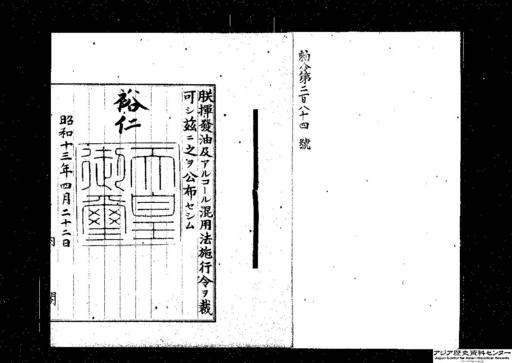 勅令第二百八十四號
朕揮發油及アルコール混用法施行令ヲ裁
可シ茲ニ之ヲ公布セシム
裕仁
天皇
御璽
昭和十三年四月二十二日
アジア歴史資料センター
Japan Center for Asian Historical Records